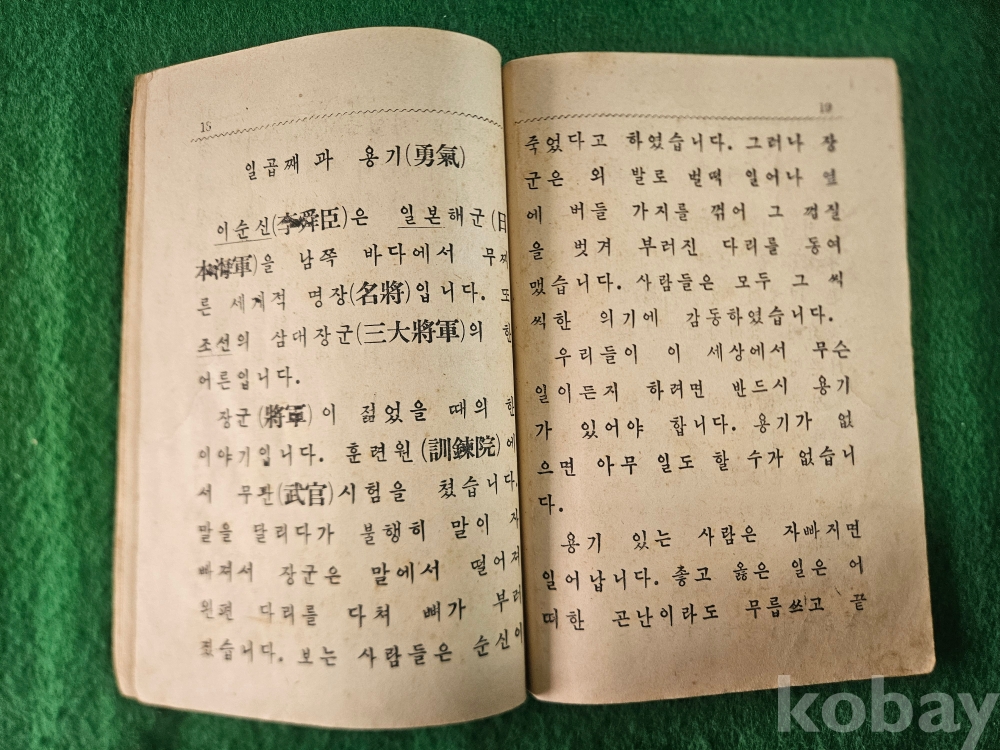 18
일곱째 과 용기(勇氣)
이순신(李舜臣)은 일본해군(日
本海軍)을 남쪽 바다에서 무찌
른 세계적 명장(名將)입니다. 또
조선의 삼대장군(三大將軍)의 한
어른입니다.
장군(將軍)이 젊었을 때의 한
이야기입니다. 훈련원(訓鍊院)에
서 무관(武官)시험을 쳤습니다.
말을 달리다가 불행히 말이 자
빠져서 장군은 말에서 떨어져
왼편 다리를 다쳐 뼈가 부러
졌습니다. 보는 사람들은 순신이
19
죽었다고 하였습니다. 그러나 장
군은 외 발로 벌떡 일어나 옆
에 버들 가지를 꺾어 그 껍질
을 벗겨 부러진 다리를 동여
맸습니다. 사람들은 모두 그 씩
씩한 의기에 감동하였습니다.
우리들이 이 세상에서 무슨
일이든지 하려면 반드시 용기
가 있어야 합니다. 용기가 없
으면 아무 일도 할 수가 없습니
다.
용기 있는 사람은 자빠지면
일어납니다. 좋고 옳은 일은 어
떠한 곤난이라도 무릅쓰고 끝
kobay